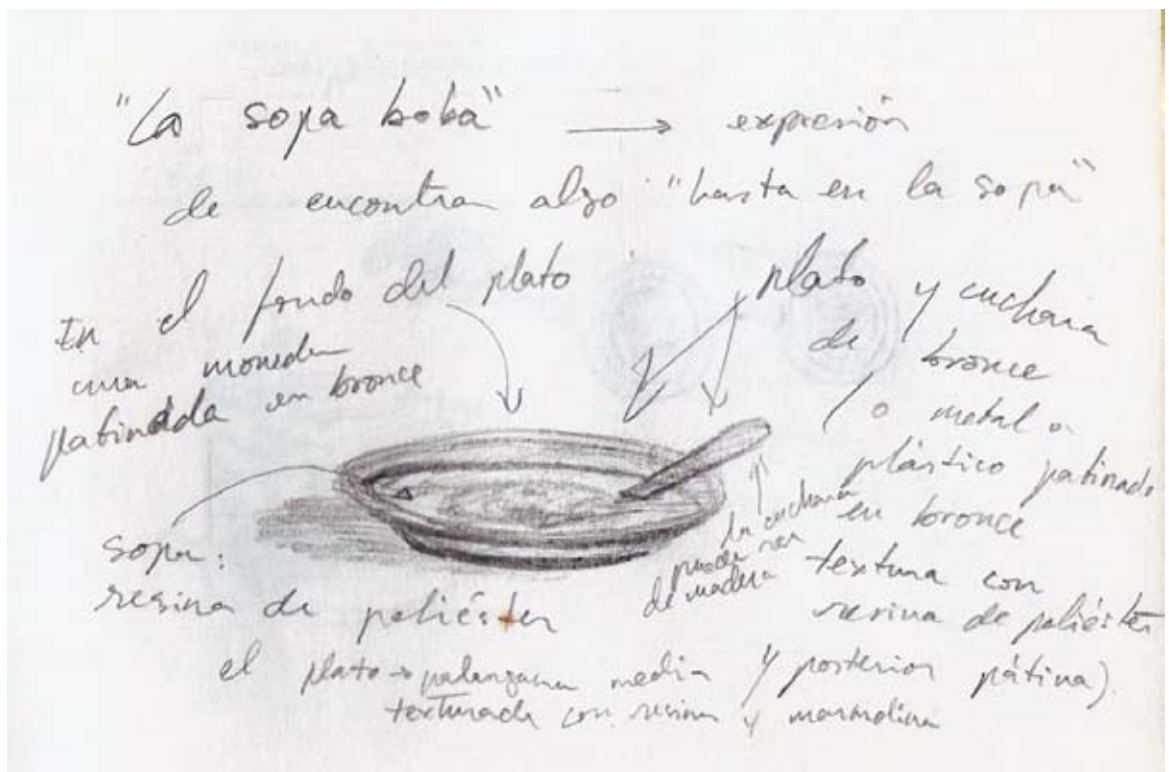 "La sopa boba" → expresión
de encontrar algo "hasta en la sopa"
En el fondo del plato
una moneda
patinada en bronce
plato y cuchara
de bronce
(o metal o
plástico patinado
en bronce
textura con
resina de poliéster
y posterior pátina).
la cuchara
puede ser
de madera
sopa:
resina de poliéster
el plato → palangana media
texturada con resina y marmolina